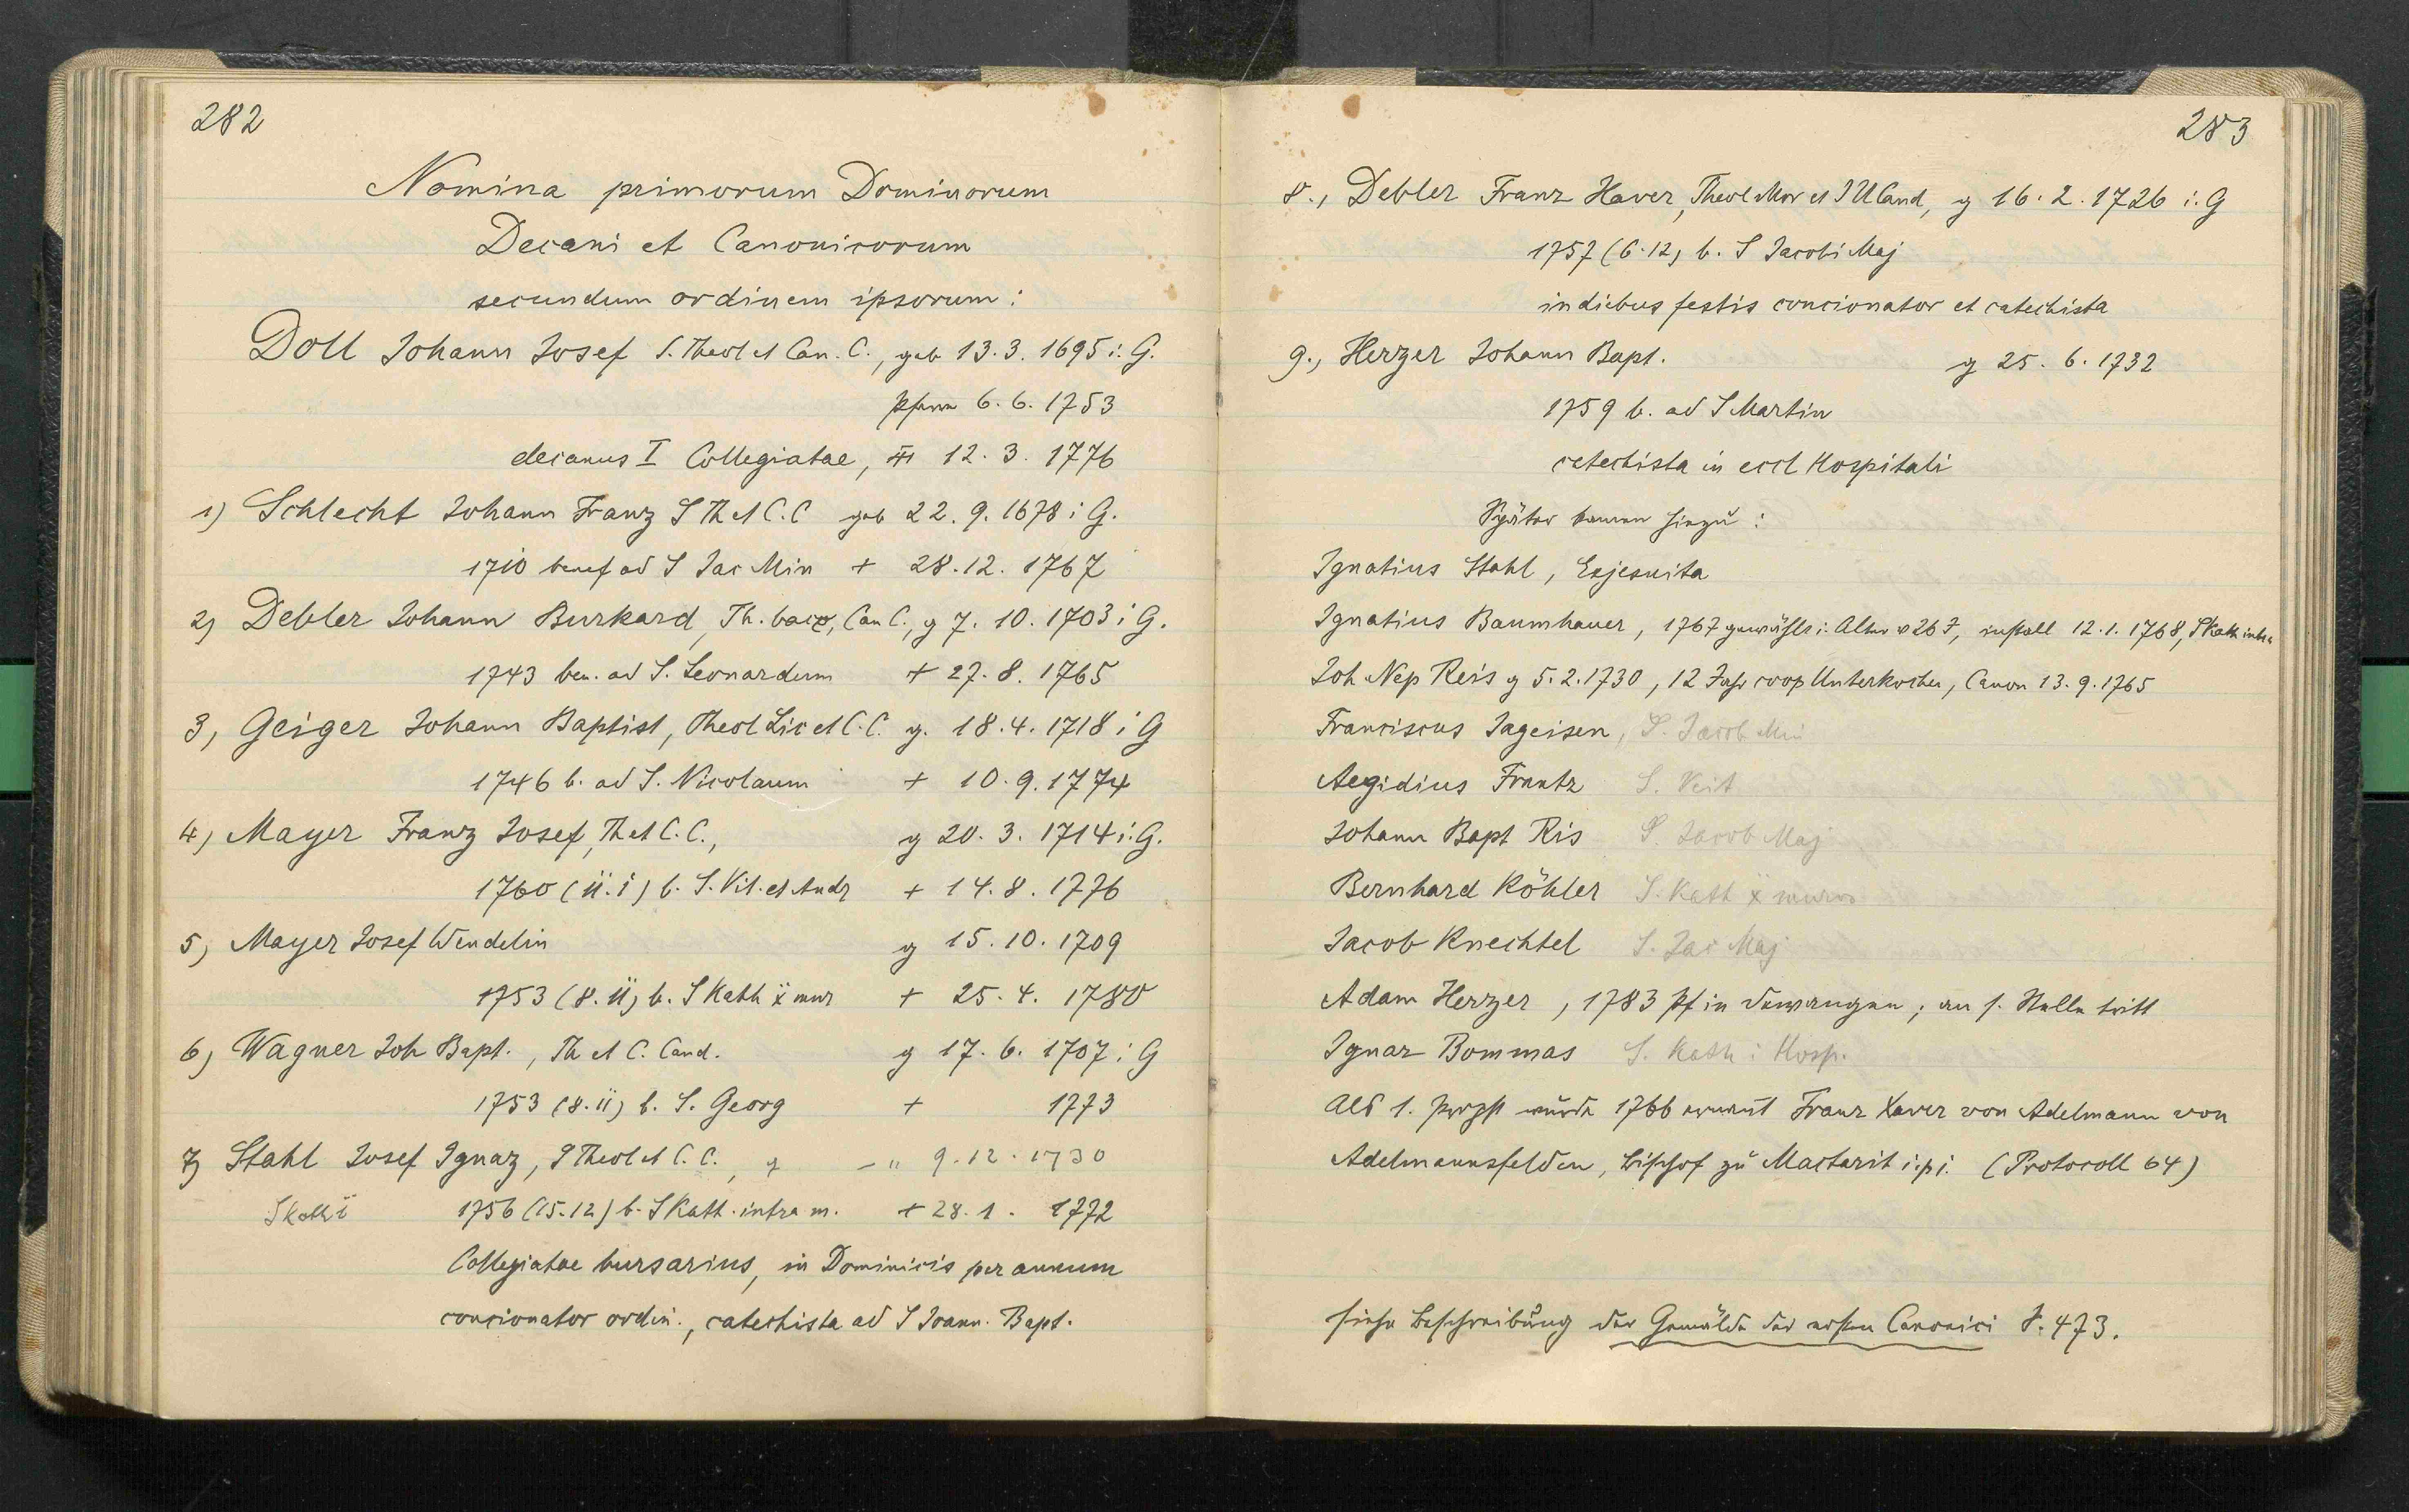 282
Nomina primorum Dominorum
Decani et Canonicorum
secundum ordinem ipsorum:
Doll Johann Josef S. Theol et Can. C., geb 13.3.1695 i. G.
Pfarrer 6.6.1753
decanus I Collegiatae, 12.3.1776
1) Schlecht Johann Franz S Th et C.C geb 22.9.1678 i G.
1710 benef ad S Jac Min + 28.12.1767
2) Debler Johann Burkard, Th. bacc, Can C., g 7.10.1703 i G.
1743 ben. ad S. Leonardum + 27.8.1765
3, Geiger Johann Baptist, Theol Lic et C.C. g. 18.4.1718 i G
1746 b. ad S. Nicolaum + 10.9.1774
4, Mayer Franz Josef, Th et C.C., g 20.3.1714 i. G.
1760 (11.1) b. S. Vit. et Andr + 14.8.1776
5, Mayer Josef Wendelin g 15.10.1709
1753 (8.11) b. S Kath x mur + 25.4.1780
6, Wagner Joh Bapt., Th et C. Cand. g 17.6.1707 i G
1753 (8.11) b. S. Georg + 1773
7, Stahl Josef Ignaz, S Theol et C.C., g - " 9.12.1730
S Kath i 1756 (15.12) b. S Kath. intra m. + 28.1.1772
Collegiatae bursarius, in Dominicis per annum
concionator ordin., catechista ad S Joann. Bapt.
283
8., Debler Franz Xaver, Theol Mor et IU Cand, g 16.2.1726 i. G
1757 (6.12) b. S Jacobi Maj
in diebus festis concionator et catechista
9., Herzer Johann Bapt. g 25.6.1732
1759 b. ad S Martin
catechista in eccl Hospitali
Später kamen hinzu:
Ignatius Stahl, Exjesuita
Ignatius Baumhauer, 1767 gewählt i. Alter v 26 J, install 12.1.1768, S Kath intra
Joh Nep Reis g 5.2.1730, 12 Jahr coop Unterkochen, Canon 13.9.1765
Franciscus Jageisen, S. Jacob Min
Aegidius Frantz S. Veit
Johann Bapt Ris S. Jacob Maj
Bernhard Köhler S. Kath x muros
Jacob Knechtel S. Jac Maj
Adam Herzer, 1783 Pf in Dewangen; an s. Stelle tritt
Ignaz Bommas S. Kath i Hosp.
Als 1. Propst wurde 1766 ernannt Franz Xaver von Adelmann von
Adelmannsfelden, Bischof zu Mactarit i.p.i. (Protocoll 64)
siehe Beschreibung der Gemälde der ersten Canonici S. 473.